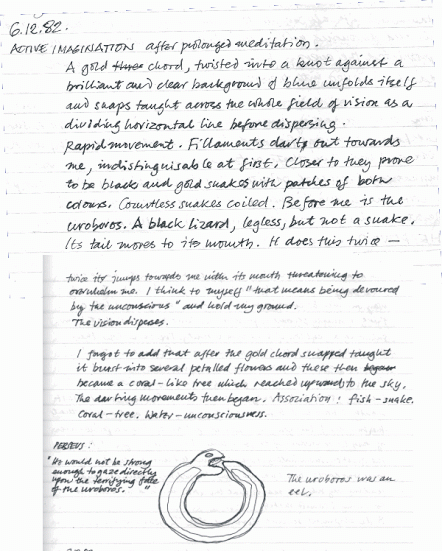 6.12.82.
ACTIVE IMAGINATION after prolonged meditation.
A gold three chord, twisted into a knot against a
brilliant and clear background of blue unfolds itself
and snaps taught across the whole field of vision as a
dividing horizontal line before dispersing.
Rapid movement. Fillaments dart out towards
me, indistinguisable at first. Closer to they prove
to be black and gold snakes with patches of both
colours. Countless snakes coiled. Before me is the
uroboros. A black lizard, legless, but not a snake.
Its tail moves to its mouth. It does this twice —
twice it jumps towards me with its mouth threatening to
overwhelm me. I think to myself "that means being devoured
by the unconscious" and hold my ground.
The vision disperses.
I forgot to add that after the gold chord snapped taught
it burst into several petalled flowers and these then began
became a coral-like tree which reached upwards to the sky.
The darting movements then began. Association: fish-snake.
Coral-tree. Water-unconsciousness.
PERSEUS:
"He would not be strong
enough to gaze directly
upon the terrifying face
of the uroboros."
The uroboros was an
eel.